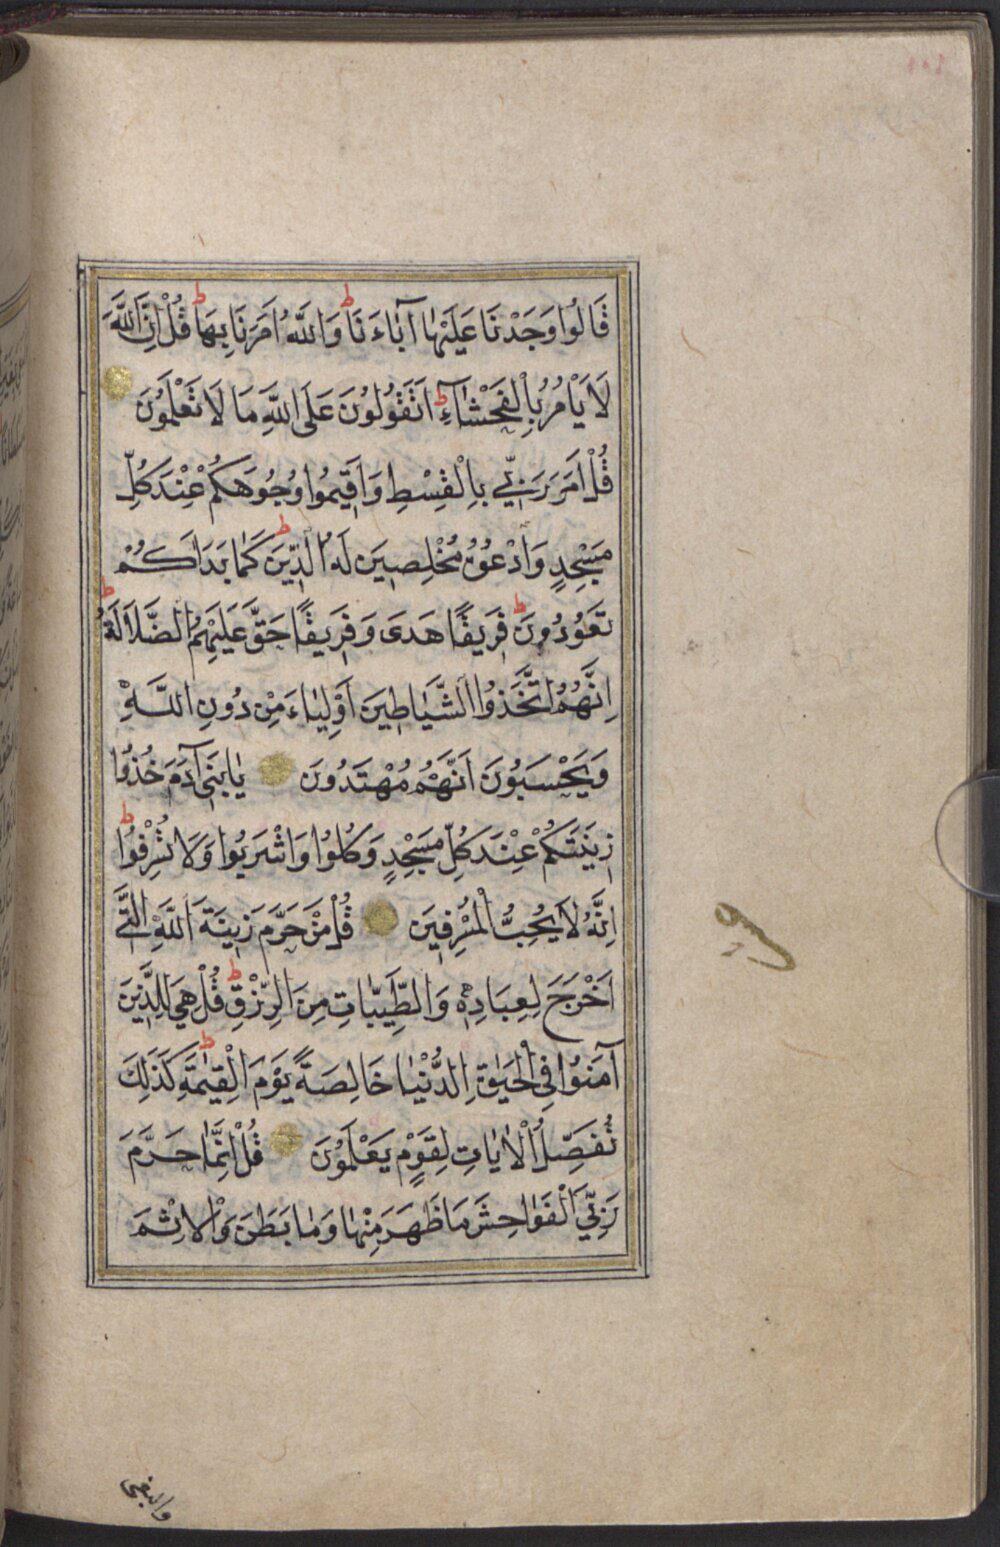 قَالُوا وَجَدْنَا عَلَيْهَا آبَاءَنَا ط وَاللَّهُ اَمَرَنَا بِهَا ط قُلْ اِنَّ اللَّهَ
لَا يَاْمُرُ بِالْفَحْشَاءِ ط اَتَقُولُونَ عَلَى اللَّهِ مَا لَا تَعْلَمُونَ
قُلْ اَمَرَ رَبِّي بِالْقِسْطِ وَاَقِيمُوا وُجُوهَكُمْ عِنْدَ كُلِّ
مَسْجِدٍ وَادْعُوهُ مُخْلِصِينَ لَهُ الدِّينَ ط كَمَا بَدَاَكُمْ
تَعُودُونَ ط فَرِيقًا هَدَى وَفَرِيقًا حَقَّ عَلَيْهِمُ الضَّلَالَةُ ط
اِنَّهُمُ اتَّخَذُوا الشَّيَاطِينَ اَوْلِيَاءَ مِنْ دُونِ اللَّهِ
وَيَحْسَبُونَ اَنَّهُمْ مُهْتَدُونَ يَابَنِي آدَمَ خُذُوا
زِينَتَكُمْ عِنْدَ كُلِّ مَسْجِدٍ وَكُلُوا وَاشْرَبُوا وَلَا تُسْرِفُوا ط
اِنَّهُ لَا يُحِبُّ الْمُسْرِفِينَ قُلْ مَنْ حَرَّمَ زِينَةَ اللَّهِ الَّتِي
اَخْرَجَ لِعِبَادِهِ وَالطَّيِّبَاتِ مِنَ الرِّزْقِ ط قُلْ هِيَ لِلَّذِينَ
آمَنُوا فِي الْحَيٰوةِ الدُّنْيَا خَالِصَةً يَوْمَ الْقِيٰمَةِ ط كَذَلِكَ
نُفَصِّلُ الْاٰيَاتِ لِقَوْمٍ يَعْلَمُونَ قُلْ اِنَّمَا حَرَّمَ
رَبِّيَ الْفَوَاحِشَ مَا ظَهَرَ مِنْهَا وَمَا بَطَنَ وَالْاِثْمَ
والبغى